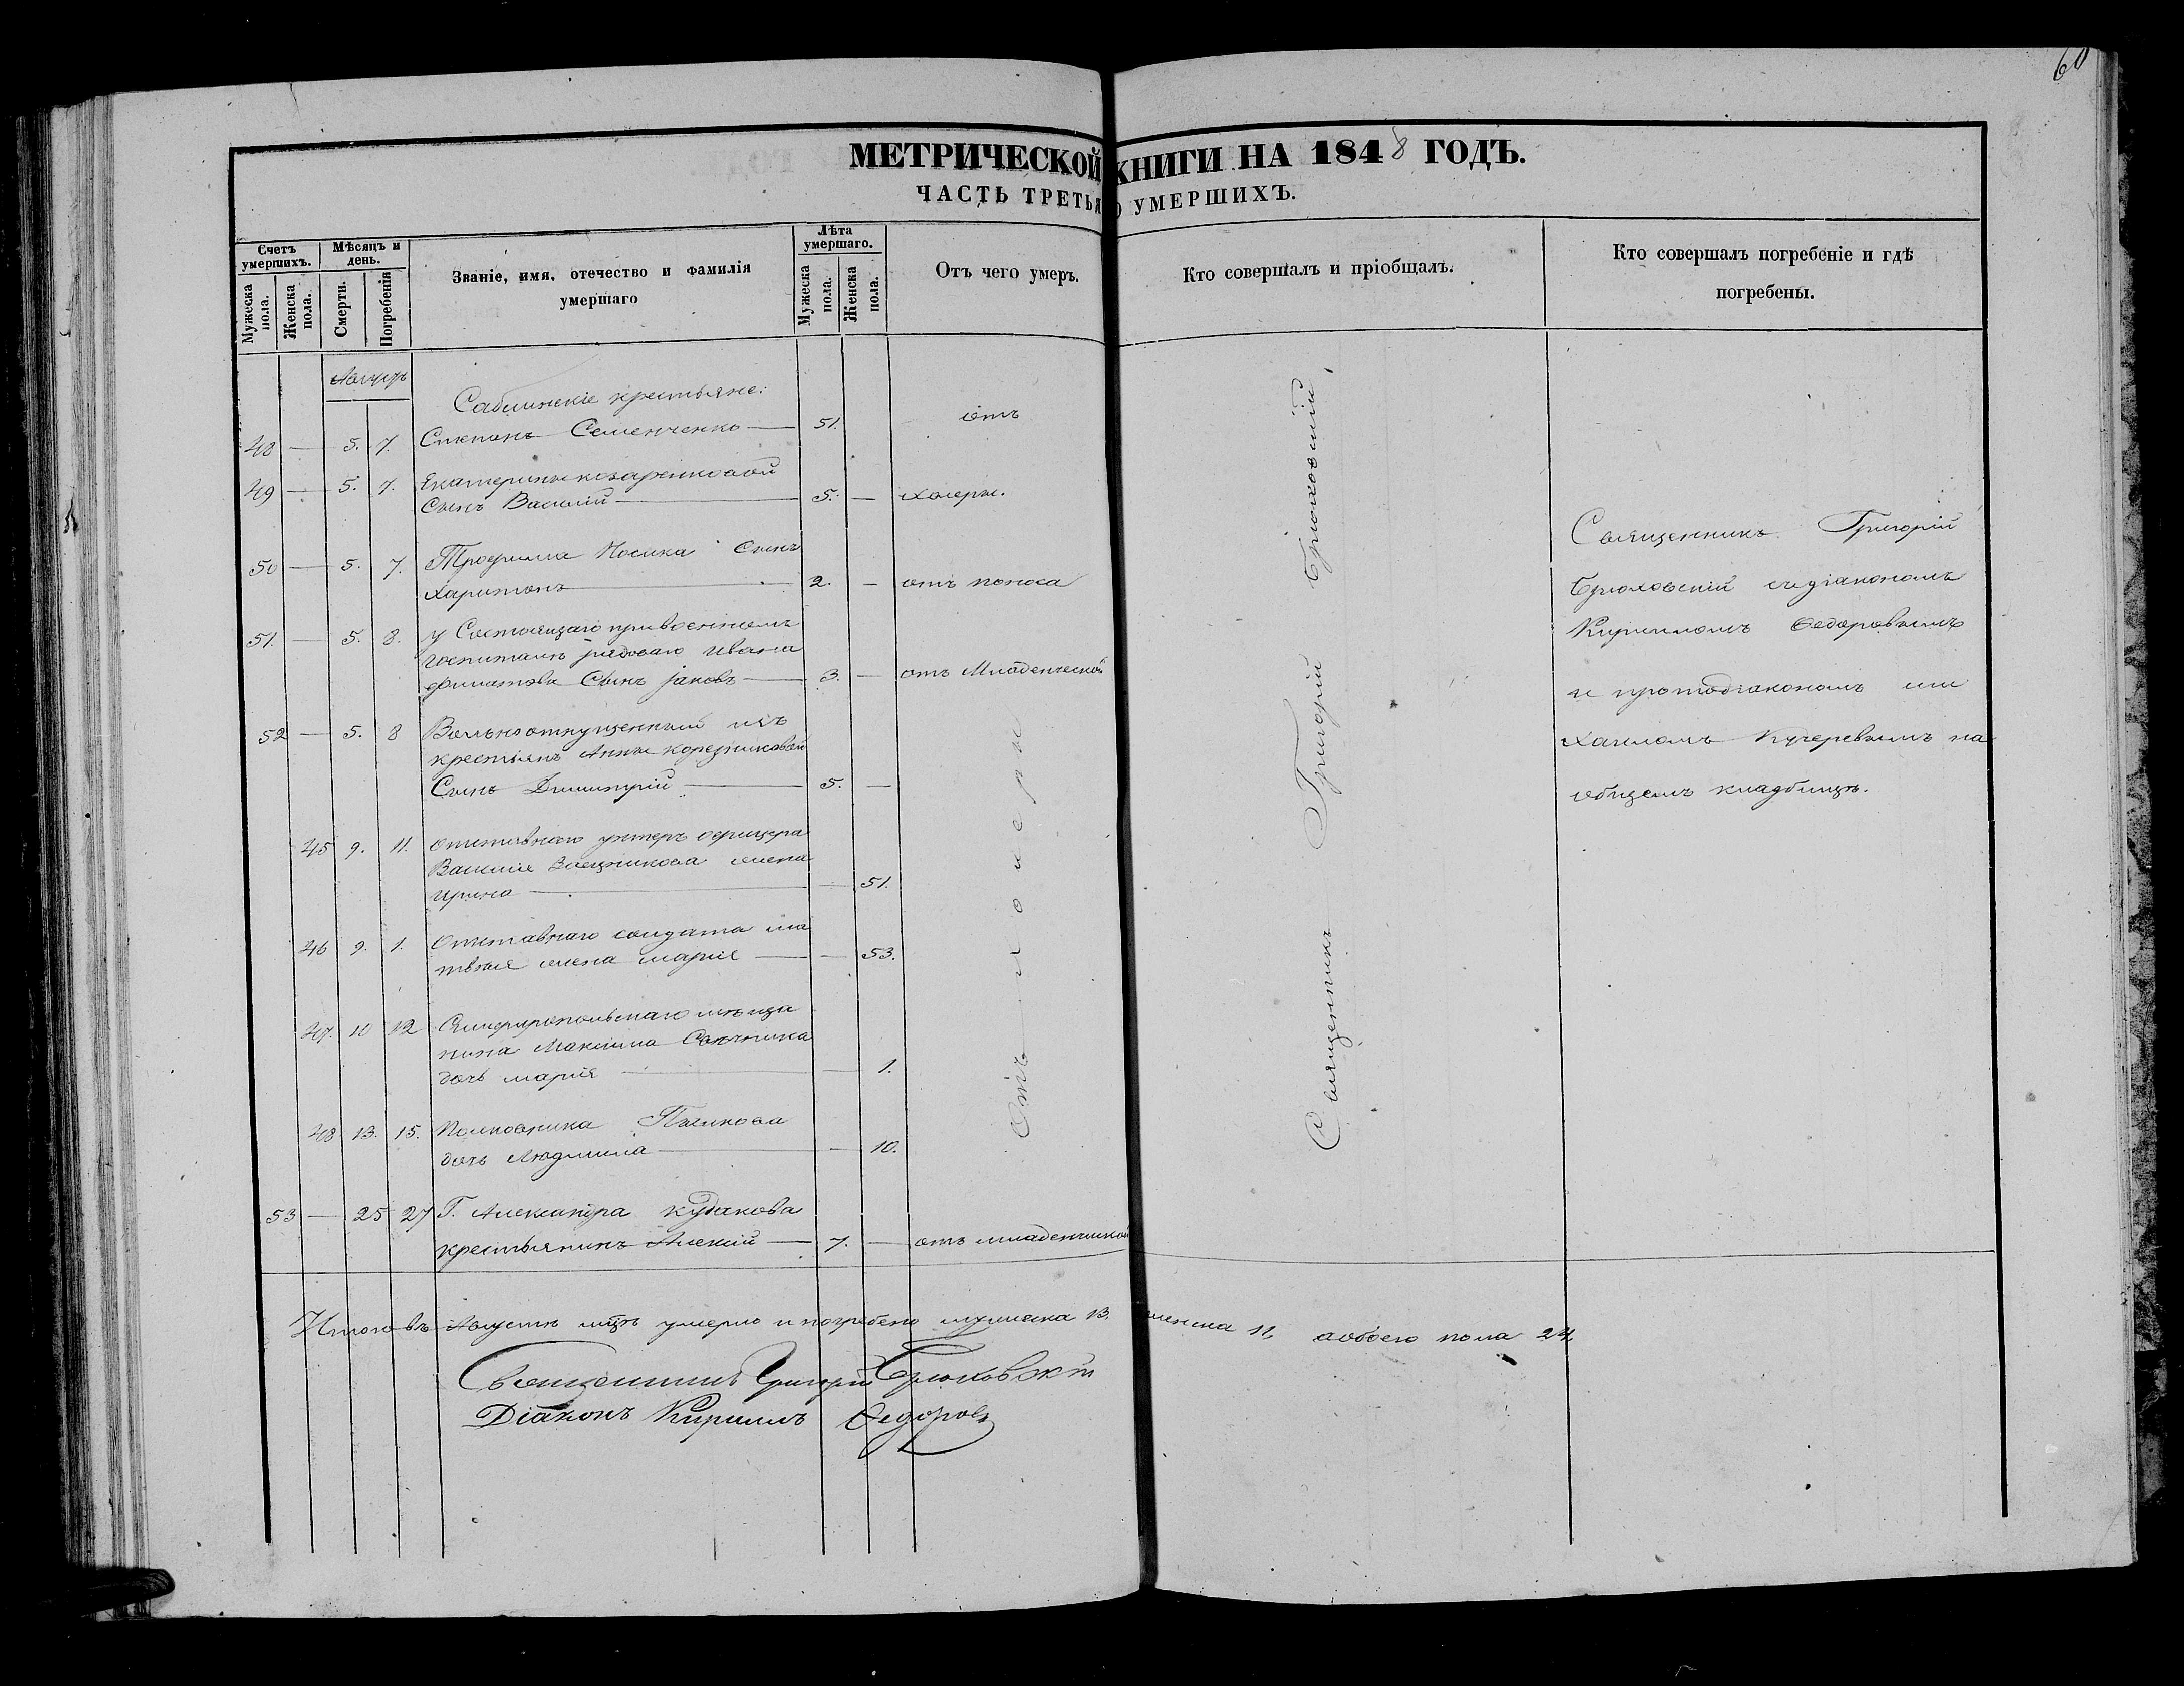 60
МЕТРИЧЕСКОЙ КНИГИ НА 1848 ГОДЪ.
ЧАСТЬ ТРЕТЬЯ О УМЕРШИХЪ.
Счетъ умершихъ.
Мужеска пола.
Женска пола.
Мѣсяцъ и день.
Смерти.
Погребенія
Званіе, имя, отечество и фамилія умершаго
Лѣта умершаго.
Мужеска пола.
Женска пола.
Отъ чего умеръ.
Кто совершалъ и пріобщалъ.
Кто совершалъ погребеніе и гдѣ погребены.
Августъ
Саблинскіе крестьяне:
48 — 5. 7. Степанъ Семенченко — 51. отъ
49 — 5. 7. Екатерины
Сынъ Василій — 5. — холеры.
50 — 5. 7. Трофима Носика Сынъ
Харитонъ — 2. — отъ поноса
51. — 5. 8. у Состоящаго при военномъ
госпиталѣ рядоваго Ивана
Филатова Сынъ Іаковъ — 3. — отъ Младенческой
52 — 5. 8 Вольноотпущенный изъ
крестьянъ Анны
Сынъ Димитрій — 5. —
45 9. 11. Отставнаго унтеръ офицера
Василія жена
Ирина — — 51.
46 9. 1. Отставнаго солдата Ма
твѣя жена Марія — — 53.
47. 11 12 Симферопольскаго мѣща
нина Максима
дочь Марія — — 1.
48 13. 15. Полковника
дочь Людмила — — 10.
53 — 25 27 Г. Александра Кудакова
крестьянинъ Алексій — 7. — отъ младенческой
Отъ холеры
Священникъ Григорій Брюховскій
Священникъ Григорій
Брюховскій съ діакономъ
Кирилломъ Ѳедоровымъ
и протодіакономъ Ми
хаиломъ Кучеревымъ на
общемъ кладбищѣ.
Итого въ Августѣ мцѣ умерло и погребено мужеска 13. женска 11, а обоего пола 24
Священникъ Григорій Брюховскій
Діаконъ Кириллъ Ѳедоровъ